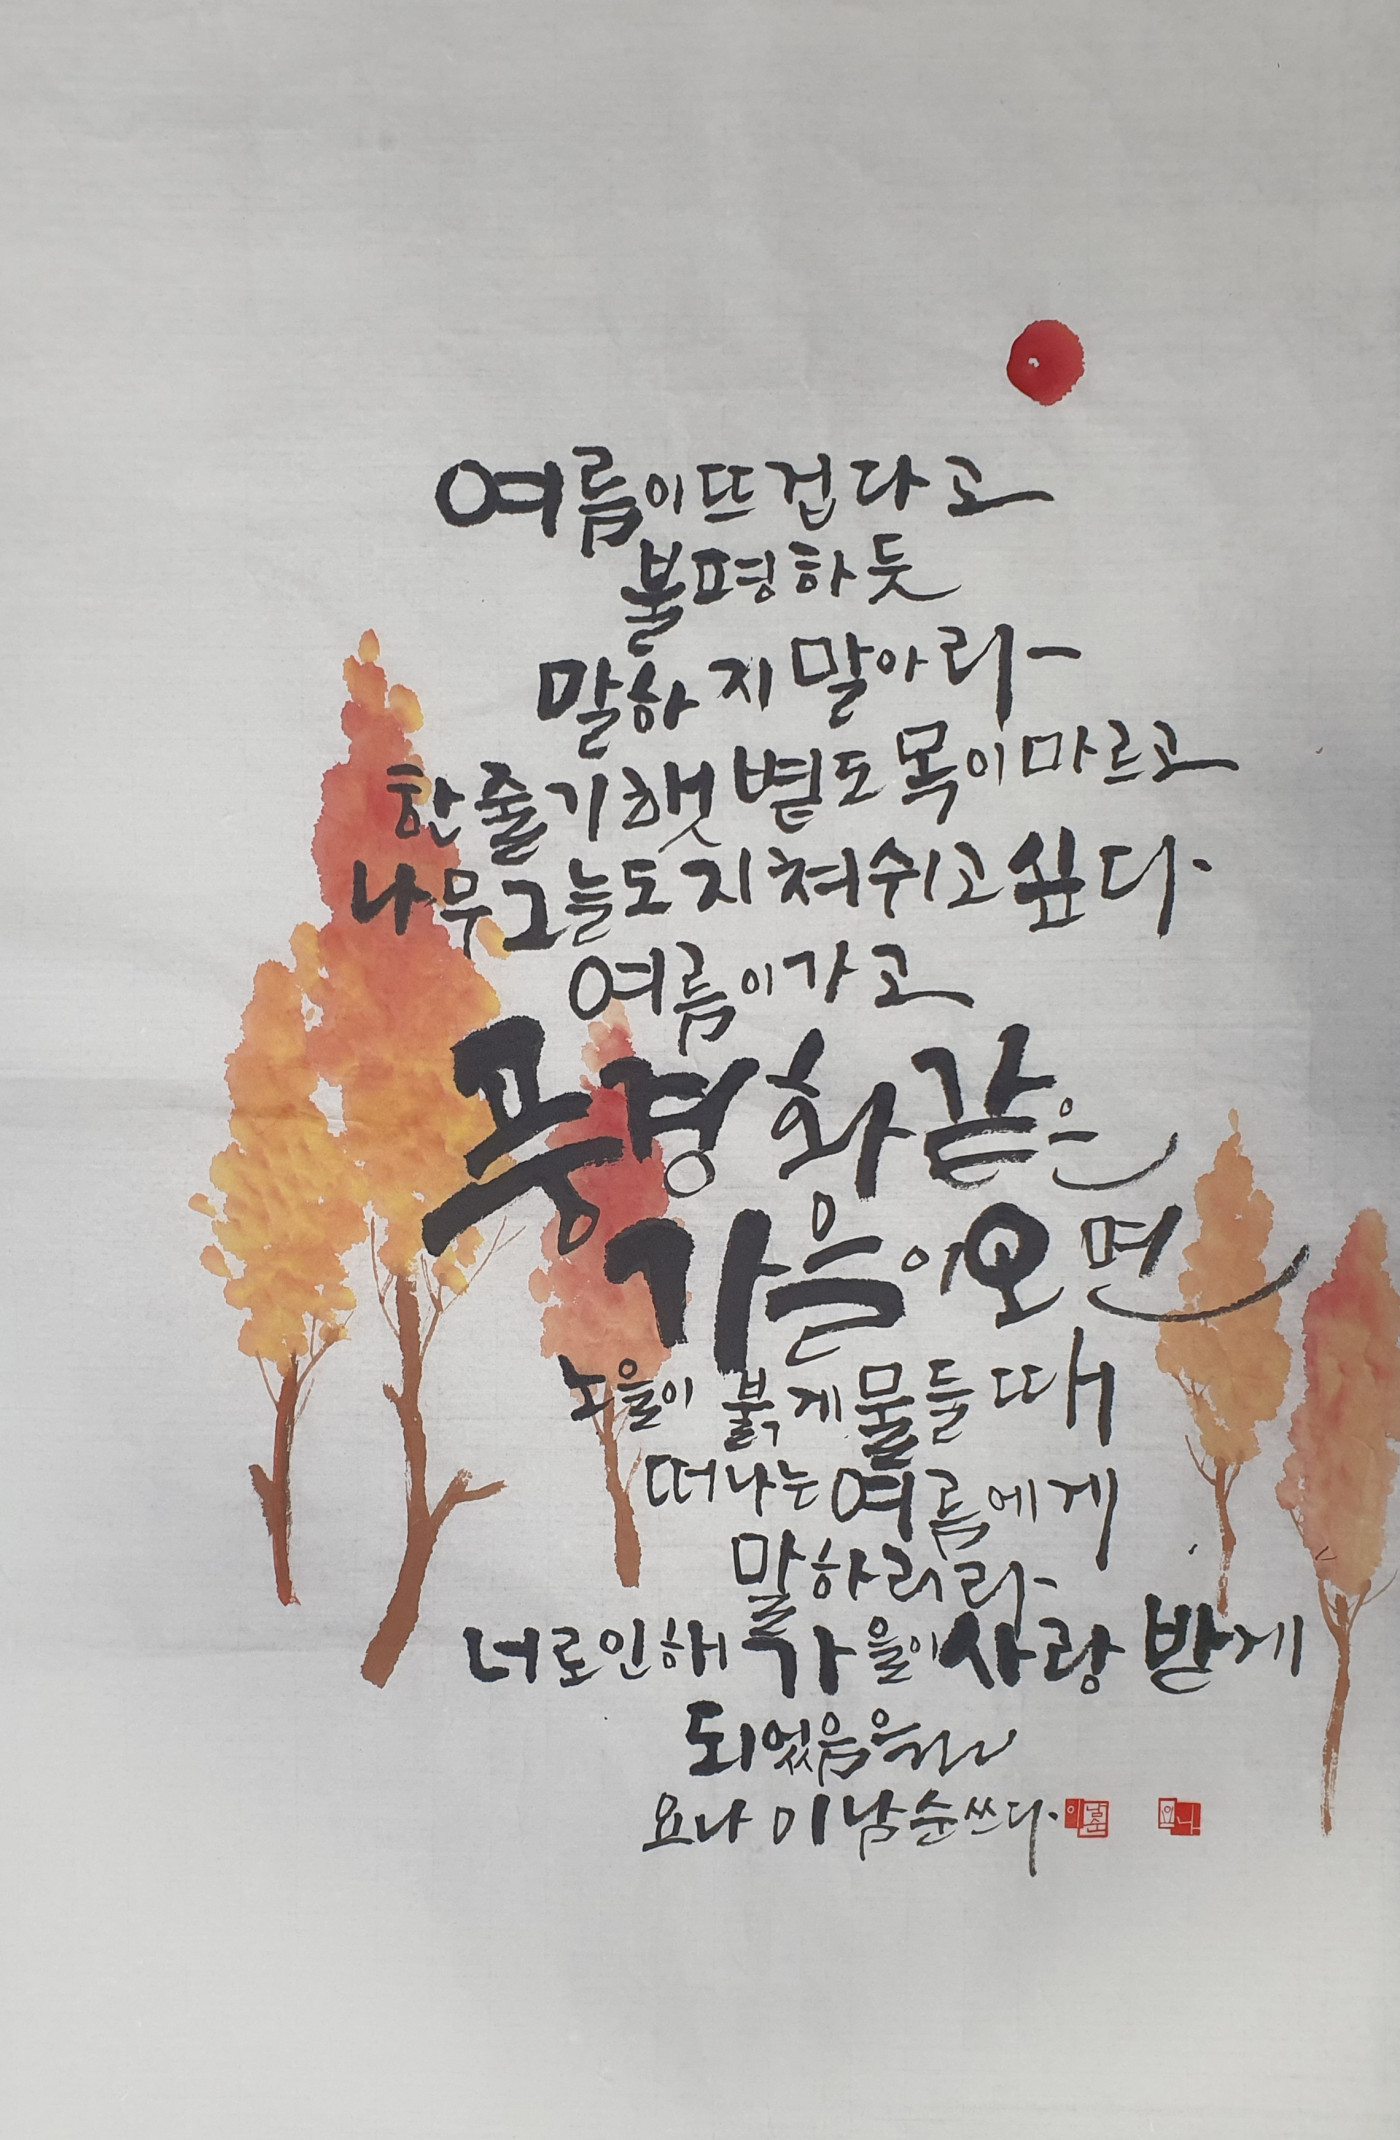 여름이 뜨겁다고
불평하듯
말하지 말아라
한줄기 햇볕도 목이 마르고
나무그늘도 지쳐 쉬고 싶다.
여름이 가고
풍경화 같은
가을이 오면
노을이 붉게 물들 때
떠나는 여름에게
말하리라
너로 인해 가을이 사랑 받게
되었음을
요나 이남순 쓰다.
이남순 요나